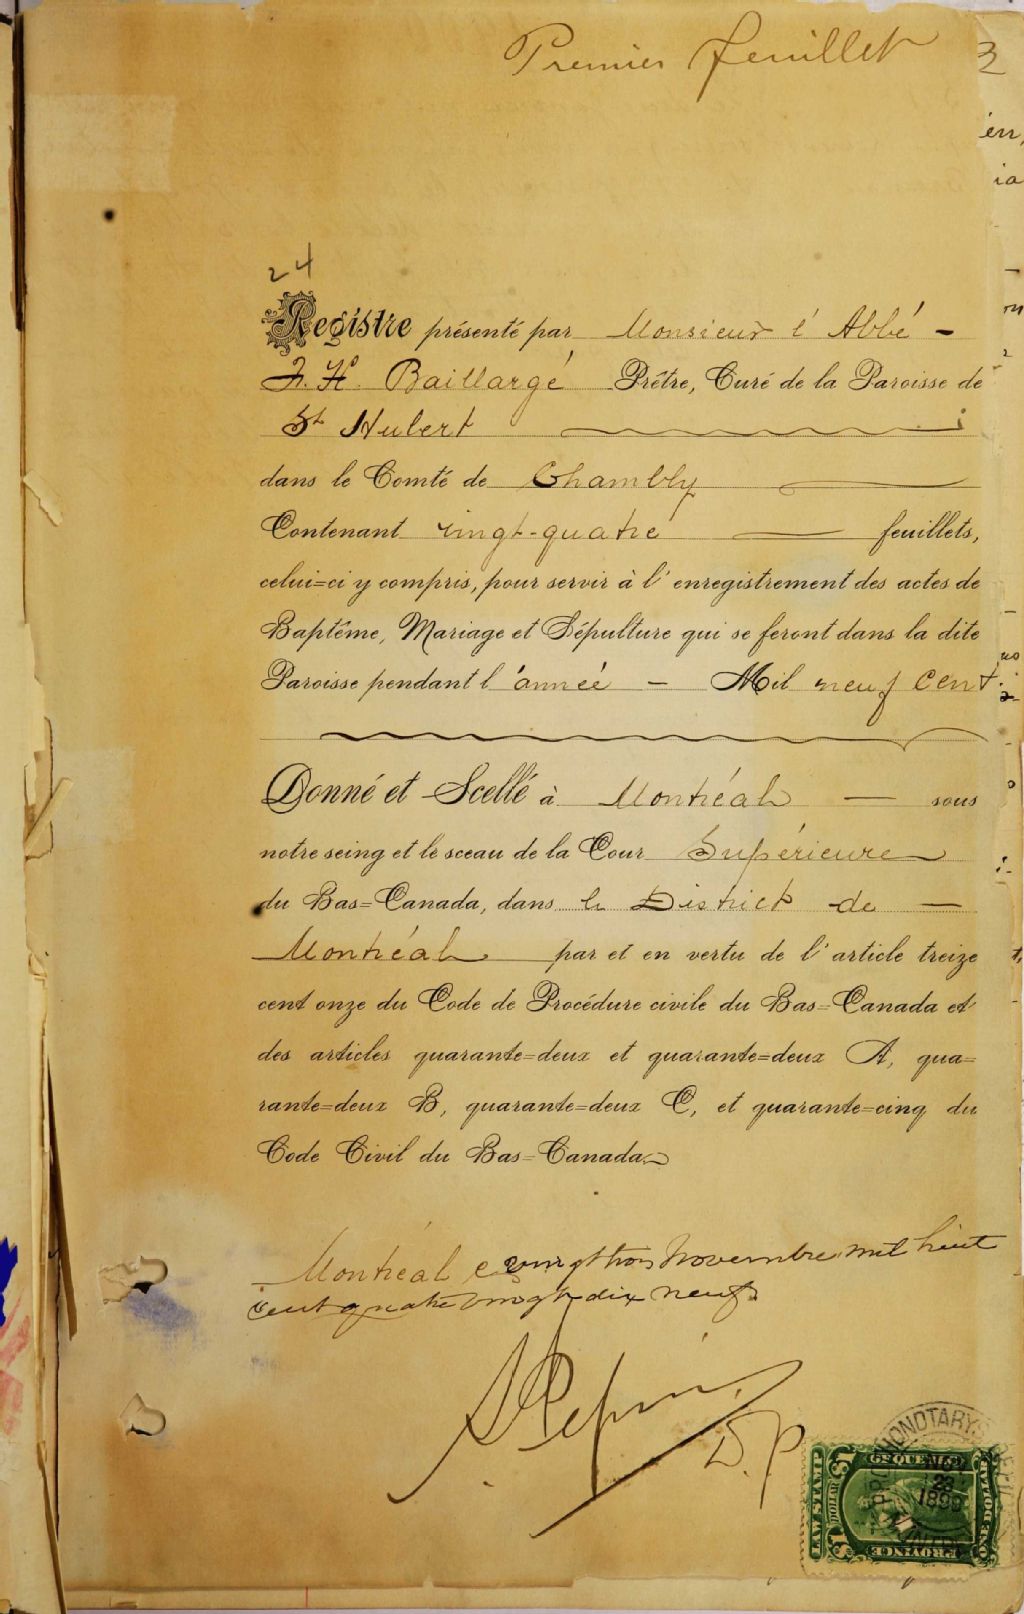 Premier feuillet
24
Registre présenté par Monsieur l'Abbé -
F. H. Baillargé Prêtre, Curé de la Paroisse de
St Hubert
dans le Comté de Chambly
Contenant vingt-quatre feuillets,
celui=ci y compris, pour servir à l'enregistrement des actes de
Baptême, Mariage et Sépulture qui se feront dans la dite
Paroisse pendant l'année - Mil neuf cent.
Donné et Scellé à Montréal — sous
notre seing et le sceau de la Cour Supérieure
du Bas=Canada, dans le District de —
Montréal par et en vertu de l'article treize
cent onze du Code de Procédure civile du Bas=Canada et
des articles quarante=deux et quarante=deux A, qua=
rante=deux B, quarante=deux C, et quarante=cinq du
Code Civil du Bas=Canada.
Montréal ce vingt trois Novembre mil huit
cent quatre vingt dix neuf.
D.P.
PROTHONOTARY'S
NOV
23
1899
$1 DOLLAR
LAW STAMP
PROVINCE
OF QUEBEC